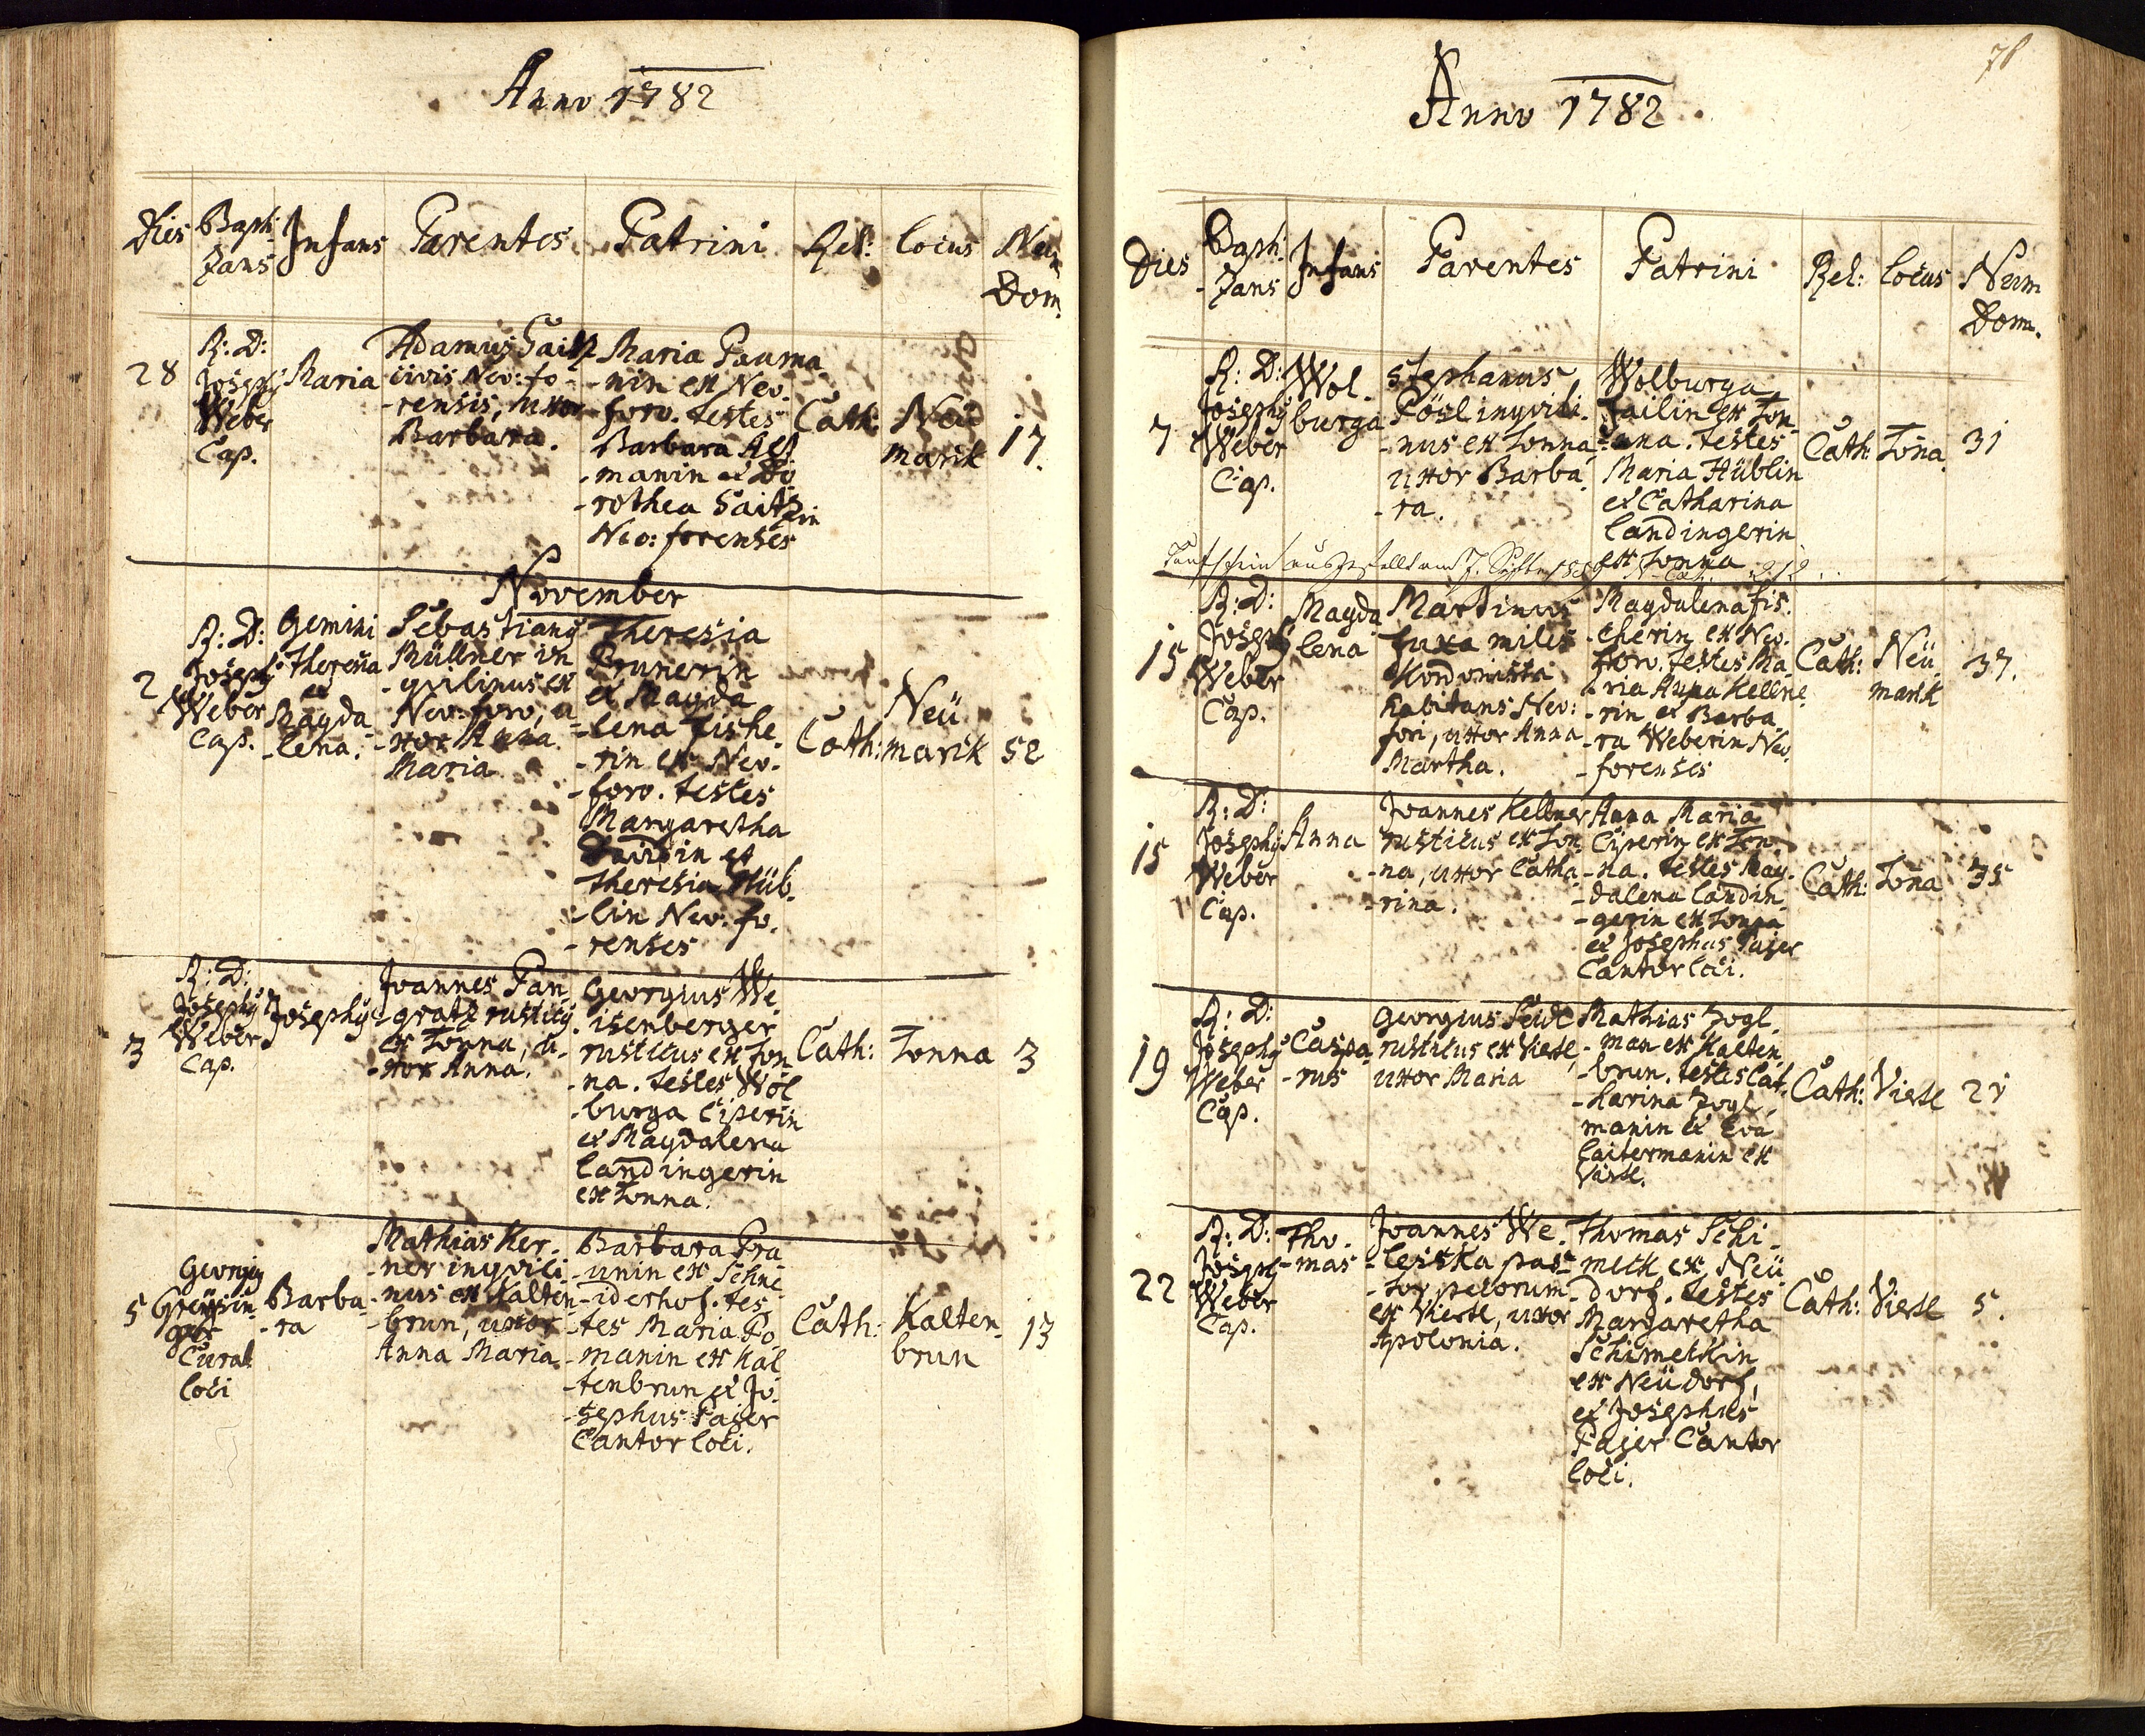 Anno 1782
Dies Bapti- Infans Parentes Patrini Rel: Locus Num
zans Dom.
28
R: D:
Joseph9
Weber
Cap.
Maria
Adamus Saitz
civis Neo: fo-
-rensis, uxor
Barbara.
Maria Pauma
-nin ex Neo-
foro. testes
Barbara
-manin et Do-
-rothea Saitzin
Neo: forenses
Cath:
Neü
marck
17.
November
2
R: D:
Joseph9
Weber
Cap.
Gemini
Theresia
et
Magda
-lena.
Sebastian9
Müllner in
-quilinus ex
Neo: foro, u
-xor Anna
Maria
Theresia
Prunerin
et Magda
-lena Fishe-
-rin ex Neo-
-foro. testes
Margaretha
et
Theresia Hüb-
-lin Neo: fo-
-renses
Cath:
Neü
marck
52
3
R: D:
Joseph9
Weber
Cap.
Joseph9
Joannes Pan-
-gratz rustic9
ex Tonna, u-
-xor Anna.
Georgius We-
isenberger
rusticus ex Ton-
-na. testes Wol
-burga Ciperin
et Magdalena
Landingerin
ex Tonna.
Cath:
Tonna
3
5
Georgi9
Greysin-
ger
Curat
loci
Barba-
-ra
Mathias Ker-
-ner inquili-
-nus ex Kalten-
-brun, uxor
Anna Maria
Barbara Pra
-unin ex Schne
-iderhof. tes-
-tes Maria Po-
-manin ex Kal
-tenbrun et Jo-
-sephus Pajer
Cantor loci.
Cath:
Kalten-
brun
13
78
Anno 1782.
Dies Bapti- Infans Parentes Patrini Rel: Locus Num
zans Dom.
7
R: D:
Joseph9
Weber
Cap.
Wol-
burga
Stephanus
Pösl inquili-
-nus ex Tonna
uxor Barba-
-ra.
Wolburga
Zailin ex Ton-
-na. testes
Maria Hüblin
et Catharina
Landingerin
ex Tonna
Cath:
Tona.
31
Taufschein ausgestellt am 7.
15
R: D:
Joseph9
Weber
Cap.
Magda
lena
Martinus
Fuxa miles
Kordonista
habitans Neo:
fori, uxor Anna
Martha.
Magdalena Fis-
-cherin ex Neo-
foro. testes Ma-
-ria Anna Kellne-
-rin et Barba-
-ra Weberin Neo-
-forenses
Cath:
Neü
marck
37.
15
R: D:
Joseph9
Weber
Cap.
Anna
Joannes Kellner
rusticus ex Ton-
-na, uxor Catha-
-rina.
Anna Maria
Ciperin ex Ton-
-na. testes Mag-
-dalena Landin-
-gerin ex Tonna
et Josephus Pajer
Cantor loci.
Cath:
Tona
35
19
R: D:
Joseph9
Weber
Cap.
Caspa
-rus
Georgius Seidl
rusticus ex Viertl,
uxor Maria
Mathias Zogl-
-man ex Kalten-
-brun. testes Cat-
-harina Zogl-
manin et Eva
Laitermanin ex
Viertl.
Cath:
Viertl
21
22
R: D:
Joseph9
Weber
Cap.
Tho-
-mas
Joannes We-
-lestka pas-
-tor pecorum
ex Viertl, uxor
Apolonia.
Thomas Schi-
-meck ex Neü
-dorf. testes
Margaretha
Schimeckin
ex Neüdorf,
et Josephus
Pajer Cantor
loci.
Cath:
Viertl
5.